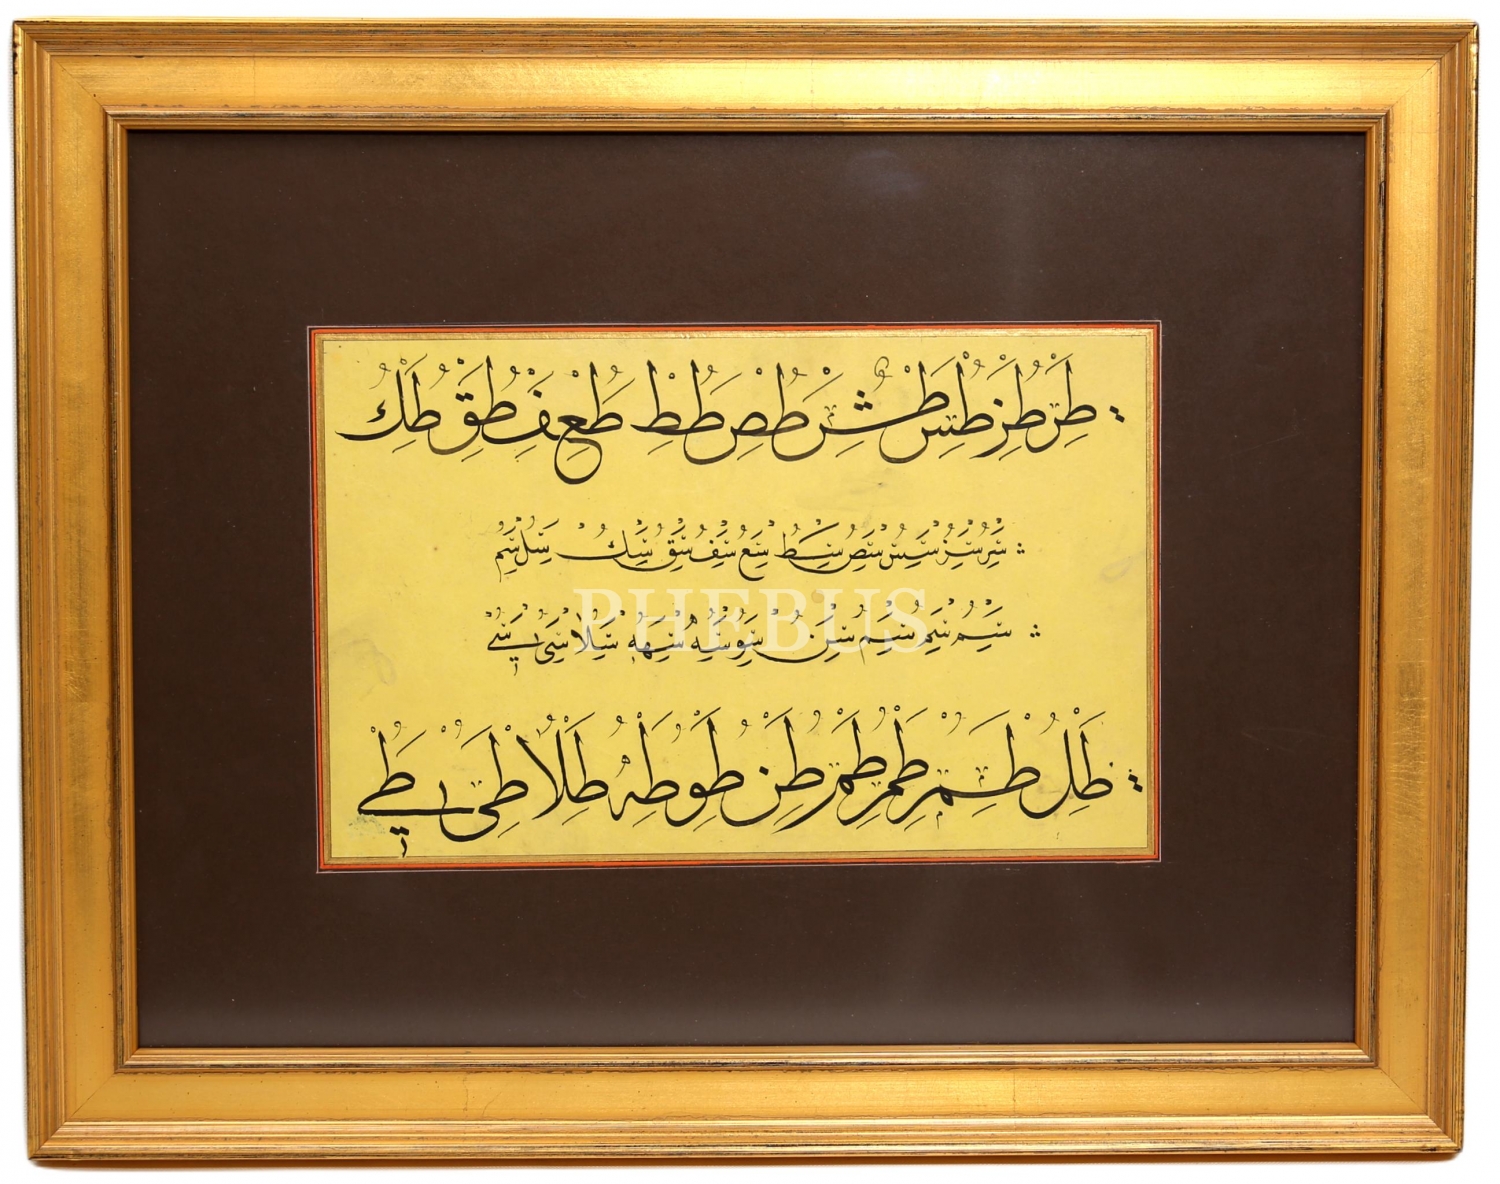 طر طز طس طش طص طط طع طف طق طك
سر سز سس سص سط سع سف سق سك سل سم
PHEBUS
سم سم سم سن سو سه سهه سلا سى سے
طل طم طم طم طن طو طه طلا طى طے